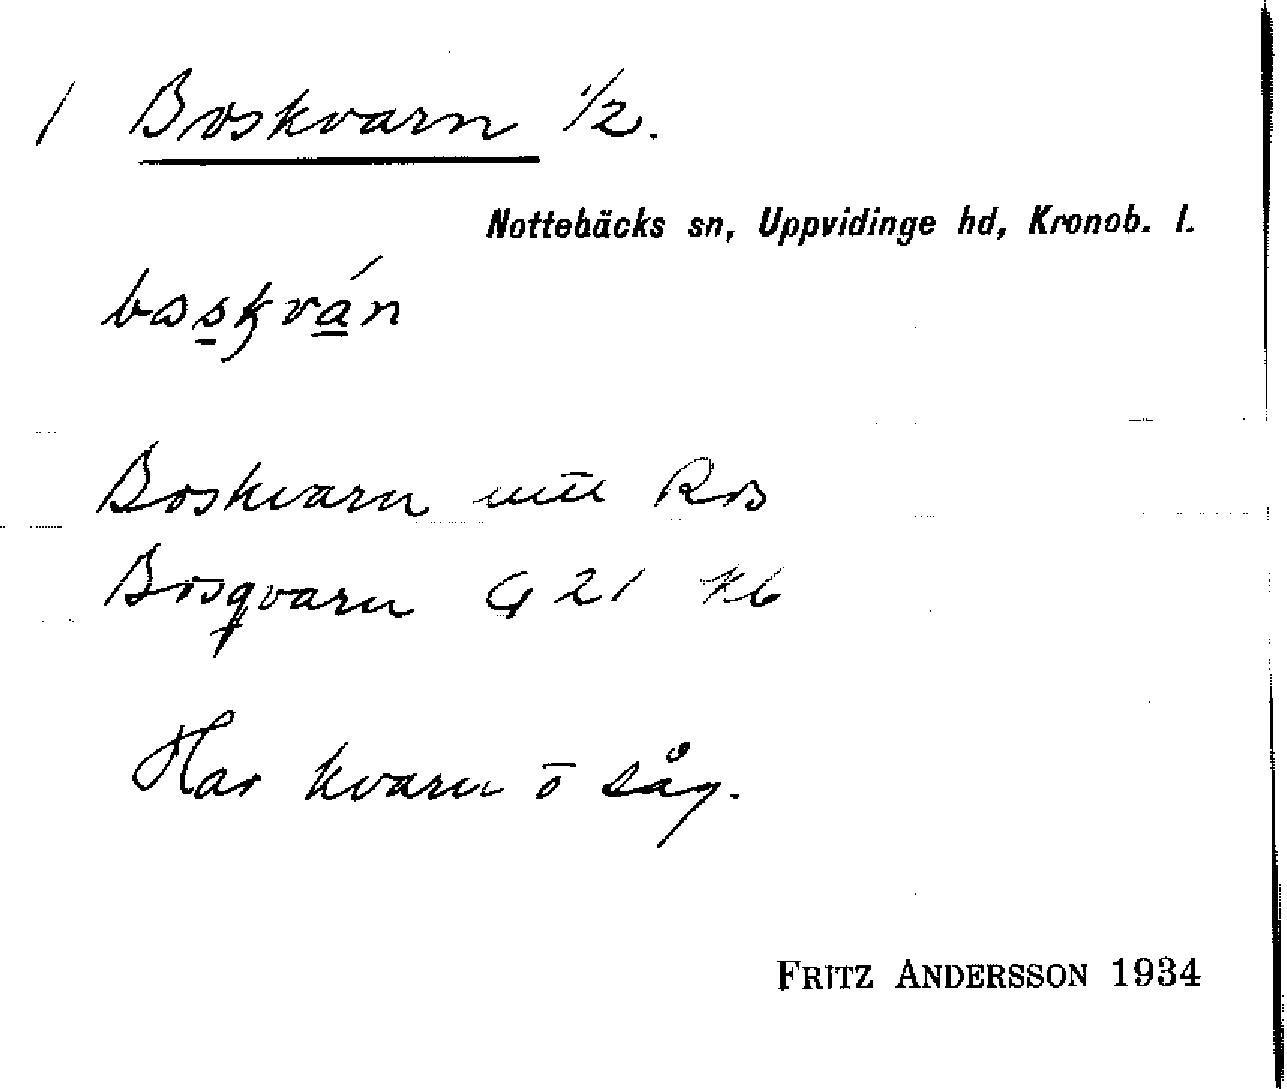 1 Boskvarn 1/2.
Nottebäcks sn, Uppvidinge hd, Kronob. l.
Boskvarn Ros
Bosqvarn G 21 Kb
Har kvarn o såg.
FRITZ ANDERSSON 1934